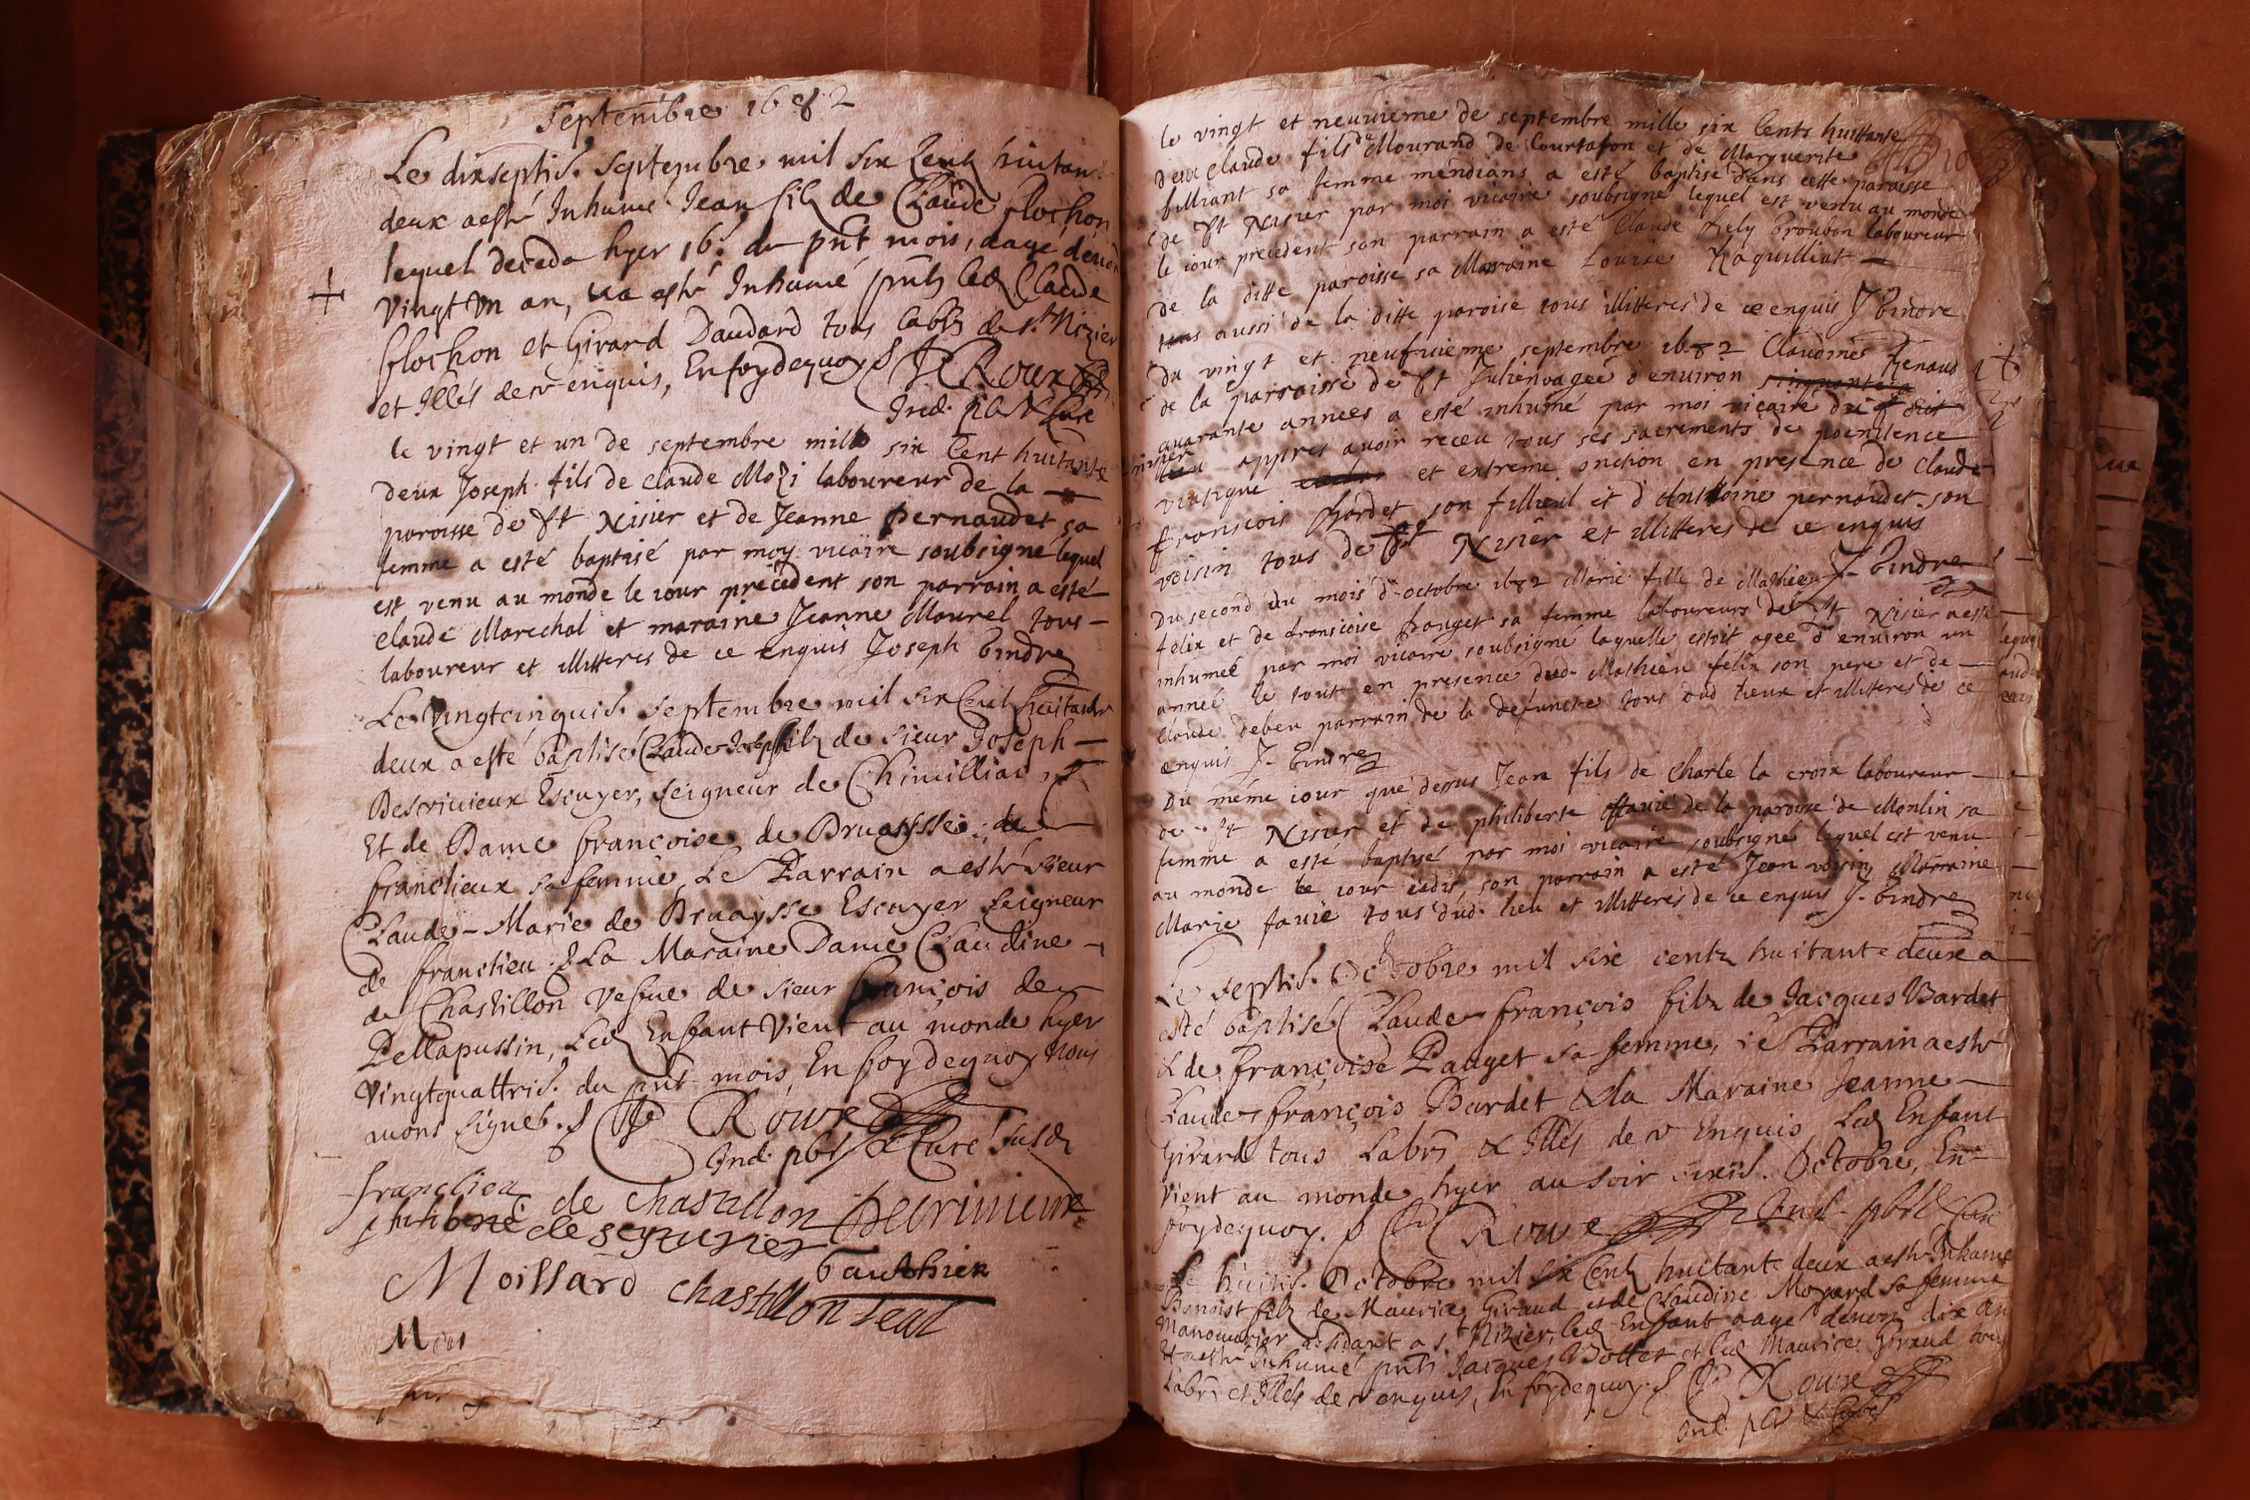 Septembre 1682
Le dixseptis. Septembre mil six Centz huitan
deux a esté Inhumé Jean filz de Claude flochon
lequel deceda hyer 16e du pnt mois, aagé denvi
vingt un an, et a esté Inhumé pntz led Claude
flochon et Girard Daudard tous labrs de St Nizier
et Illés de ce enquis, En foy de quoy J Roux
Ind. pbr & Curé
le vingt et un de septembre mille six Cent huitante
deux Joseph fils de claude Mozi laboureur de la
paroisse de St Nisier et de Jeanne pernaudet sa
femme a esté baptisé par moy vicaire soubsigné lequel
est venu au monde le iour précédent son parrain a esté
claude Marechal et maraine Jeanne Maurel tous
laboureur et illitteres de ce enquis Joseph bindre
Le Vingtcinquis. Septembre mil six Cent huitante
deux a esté baptisé Claude Joseph filz de sieur Joseph
Descrivieux Escuyer, seigneur de Chimilliac
Et de Dame françoise de Bruaysse de
franclieux sa femme, Le Parrain a esté sieur
Claude-Marie de Bruaysse Escuyer Seigneur
de franclieu & La Maraine Dame Claudine
de Chastillon vefue de sieur françois de
Pellapussin, Led Enfant Vient au monde hyer
vingtquattris. du pnt mois, En foy de quoy nous
auons signés. Roux
Ind. pbr & Curé susd
franclieu de chastillon Decrivieux
philiberte de seyturier
Moissard chastillon seul Gauthier
le vingt et neuuieme de septembre mille six Cents huittante
Deux Claude fils de Mourand de Courtafon et de Marguerite
billiant sa femme mendians a esté baptisé dans cette paroisse
de St Nisier par moi vicaire soubsigné lequel est venu au monde
le iour precedent son parrain a esté Claude Proubon laboureur
de la ditte paroisse sa Maraine Louise Raquilliat
tous aussi de la ditte paroise tous illitteres de ce enquis J bindre
du vingt et neufuieme septembre 1682 Claudine Renaus
de la parroisse de St Julien agée d'enuiron
quarante années a esté inhumé par moi vicaire du dit
lieu appres auoir receu tous ses sacrements de poenitence
viatique et extreme onction en presence de Claude
francois Bardet son filleul et d'Anthoine pernaudet son
voisin tous de St Nisier et illitteres de ce enquis
J. bindre
Du second du mois d'octobre 1682 Marie fille de Mathieu
felix et de francoise panget sa femme laboureurs de St Nisier a esté
inhumée par moi vicaire soubsigné laquelle estoit agée d'enuiron un
année le tout en presence dud. Mathieu felix son pere et de
claude debeu parrain de la defuncte tous dud lieux et illitteres de ce
enquis J. bindre
Du même iour que dessus Jean fils de charle la croix laboureur
de St Nisier et de philiberte favié de la paroisse de Monlin sa
femme a esté baptisé par moi vicaire soubsigné lequel est venu
au monde le iour iadis, son parrain a esté Jean voisin Marraine
Marie favié tous dud. lieu et illitteres de ce enquis J. bindre
Le septis. Octobre mil six centz huitante deux a
esté baptisé Claude françois filz de Jacques Bardet
& de françoise Pauget sa femme, Le Parrain a esté
Claude françois Bardet & la Maraine Jeanne
Girard tous Labrs & Illés de ce Enquis Led Enfant
vient au monde hyer au soir sixis. Octobre, En
foy de quoy. Roux Ind. pbr & Curé
Le huitis. Octobre mil six Centz huitante deux a esté Inhumé
Benoist filz de Maurice Giraud et de Claudine Moyard sa femme
Manouurier résidant a St Nizier, led Enfant aagé denvon dix an
Et a esté Inhumé pntz Jacques Bottet et led Maurice Giraud tous
Labrs et Illés de ce enquis, En foy de quoy. Roux
Ind. pbr & Curé